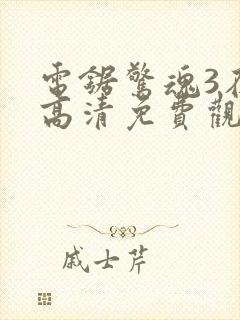 電鋸驚魂3在
高清免費觀
戚士芹